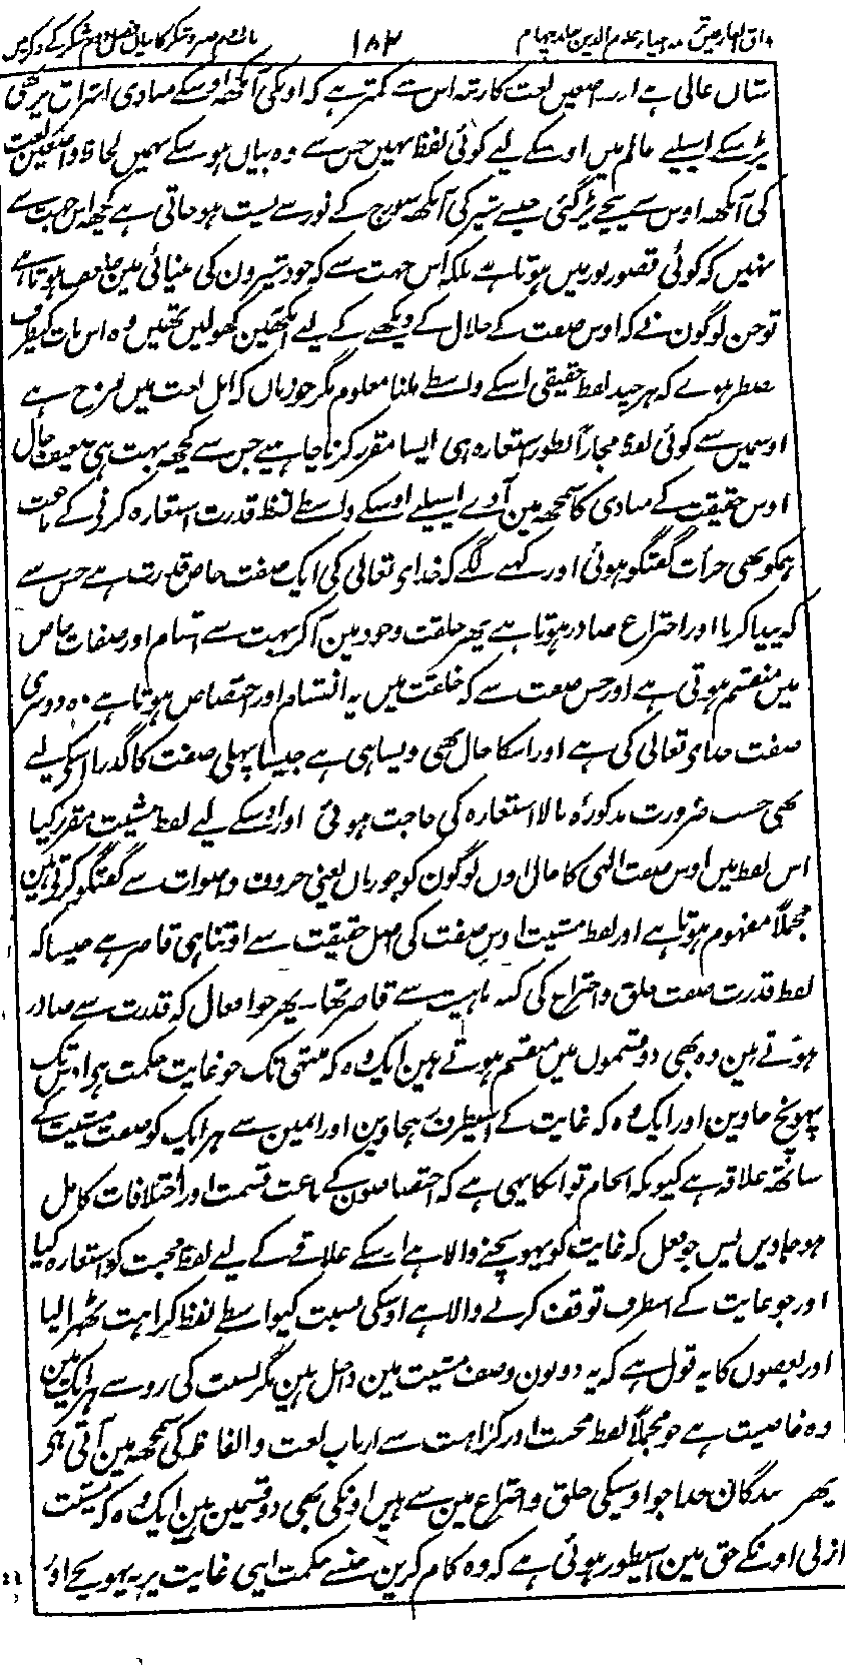 مذاق العارفین ترجمہ احیاء علوم الدین جلد چہارم ۱۸۲ باب دوم صبر و شکر کا بیان فصل دوم شکر کے ذکر میں
شان عالی ہے اور واضعین لغت کا رتبہ اس سے کمتر ہے کہ اونکی آنکھ اوسکے مبادی اشراق پر بھی
پڑسکے اسیلیے عالم میں اوسکے لیے کوئی لفظ نہیں جس سے وہ بیاں ہوسکے سہیں لحاظ واضعین لغت
کی آنکھ اوس سے نیچے پڑ گئی جیسے شپر کی آنکھ سورج کے نور سے پست ہوجاتی ہے کچھ اس جہت سے
نہیں کہ کوئی قصور نور میں ہوتا ہے بلکہ اس جہت سے کہ خود شپرون کی بینائی مین ضعف ہوتا ہے
توجن لوگون نے کہ اوس صفت کے جلال کے دیکھنے کے لیے آنکھین کھولیں تھیں وہ اس بات کیطرف
مضطر ہوے کہ ہر چند لفظ حقیقی اسکے واسطے ملنا معلوم مگر جو زباں کہ اہل لغت میں مروج ہے
اوسمیں سے کوئی لفظ مجازاً بطور استعارہ ہی ایسا مقرر کرنا چاہیے جس سے کچھ بہت ہی ضعیف حال
اوس حقیقت کے مبادی کا سمجھ مین آوے اسیلیے اوسکے واسطے لفظ قدرت استعارہ کرنے کے باعث
ہمکو بھی جرأت گفتگو ہوئی اور کہنے لگے کہ خدای تعالی کی ایک صفت خاص قدرت ہے جس سے
کہ پیدا کرنا اور اختراع صادر ہوتا ہے پھر خلقت وجود مین آکر بہت سے اقسام اور صفات خاص
میں منقسم ہوتی ہے اور جس صفت سے کہ خلقت میں یہ انقسام اور اختصاص ہوتا ہے وہ دوسری
صفت خدای تعالی کی ہے اور اسکا حال بھی ویسا ہی ہے جیسا پہلی صفت کا گذرا اسکے لیے
بھی حسب ضرورت مذکورہ بالا استعارہ کی حاجت ہوئی اور اوسکے لیے لفظ مشیت مقرر کیا
اس لفظ میں اوس صفت الہی کا حال اوں لوگون کو جو زباں یعنی حروف و اصوات سے گفتگو کرتے ہین
مجملاً مفہوم ہوتا ہے اور لفظ مشیت اوس صفت کی اصل حقیقت سے اوتنا ہی قاصر ہے جیسا کہ
لفظ قدرت صفت خلق و اختراع کی کنہ ماہیت سے قاصر تھا۔ پھر جو افعال کہ قدرت سے صادر
ہوتے ہین وہ بھی دو قسموں میں منقسم ہوتے ہین ایک وہ کہ منتہی تک جو غایت حکمت ہی اوس تک
پہونچ جاوین اور ایک وہ کہ غایت کے اسیطرف رہجاوین اور امین سے ہر ایک کو صفت مشیت کے
ساتھ علاقہ ہے کیونکہ انجام تو اسکا یہی ہے کہ اختصاصون کے باعث قسمت اور اختلافات کامل
ہوجاویں پس جو فعل کہ غایت کو پہونچنے والا ہے اوسکے علاقے کے لیے لفظ محبت کو استعارہ کیا
اور جو غایت کے اسطرف توقف کرنے والا ہے اوسکی نسبت کیواسطے لفظ کراہت ٹھرالیا
اور بعضوں کا یہ قول ہے کہ یہ دونون وصف مشیت مین داخل ہین مگر نسبت کی روسے ہر ایک مین
وہ خاصیت ہے جو مجملاً لفظ محبت اور کراہت سے ارباب لغت و الفاظ کی سمجھ مین آتی ہی
پھر بندگان خدا جو اوسیکی خلق و اختراع مین سے ہیں اونکی بھی دو قسمین ہین ایک وہ کہ مشیت
ازلی اونکے حق مین اسیطور ہوئی ہے کہ وہ کام کرین جنسے حکمت اپنی غایت پر نہ پہونچے اور